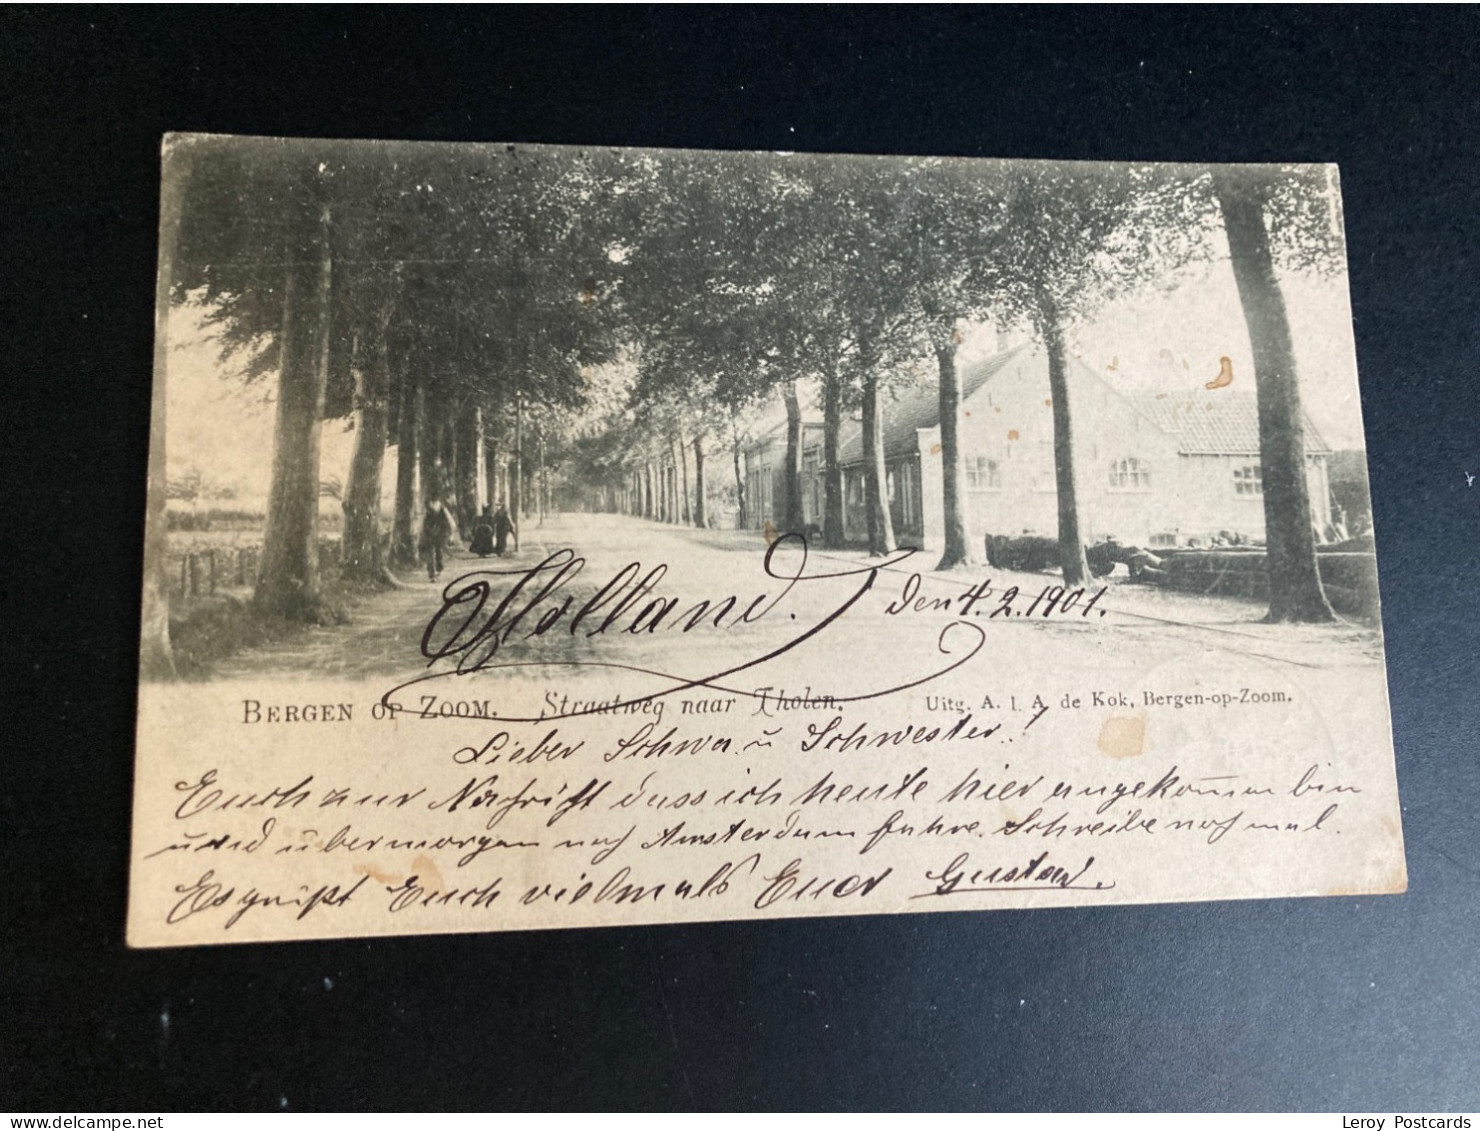 Holland. den 4.2.1901.
BERGEN OP ZOOM. Straatweg naar Tholen. Uitg. A. I. A. de Kok, Bergen-op-Zoom.
Lieber Schwa. u Schwester!
Euch zur Nachricht dass ich heute hier angekom̄en bin
und übermorgen nach Amsterdam fahre. Schreibe noch mal.
Es grüßt Euch vielmals Euer Gustav.
delcampe.net
Leroy Postcards